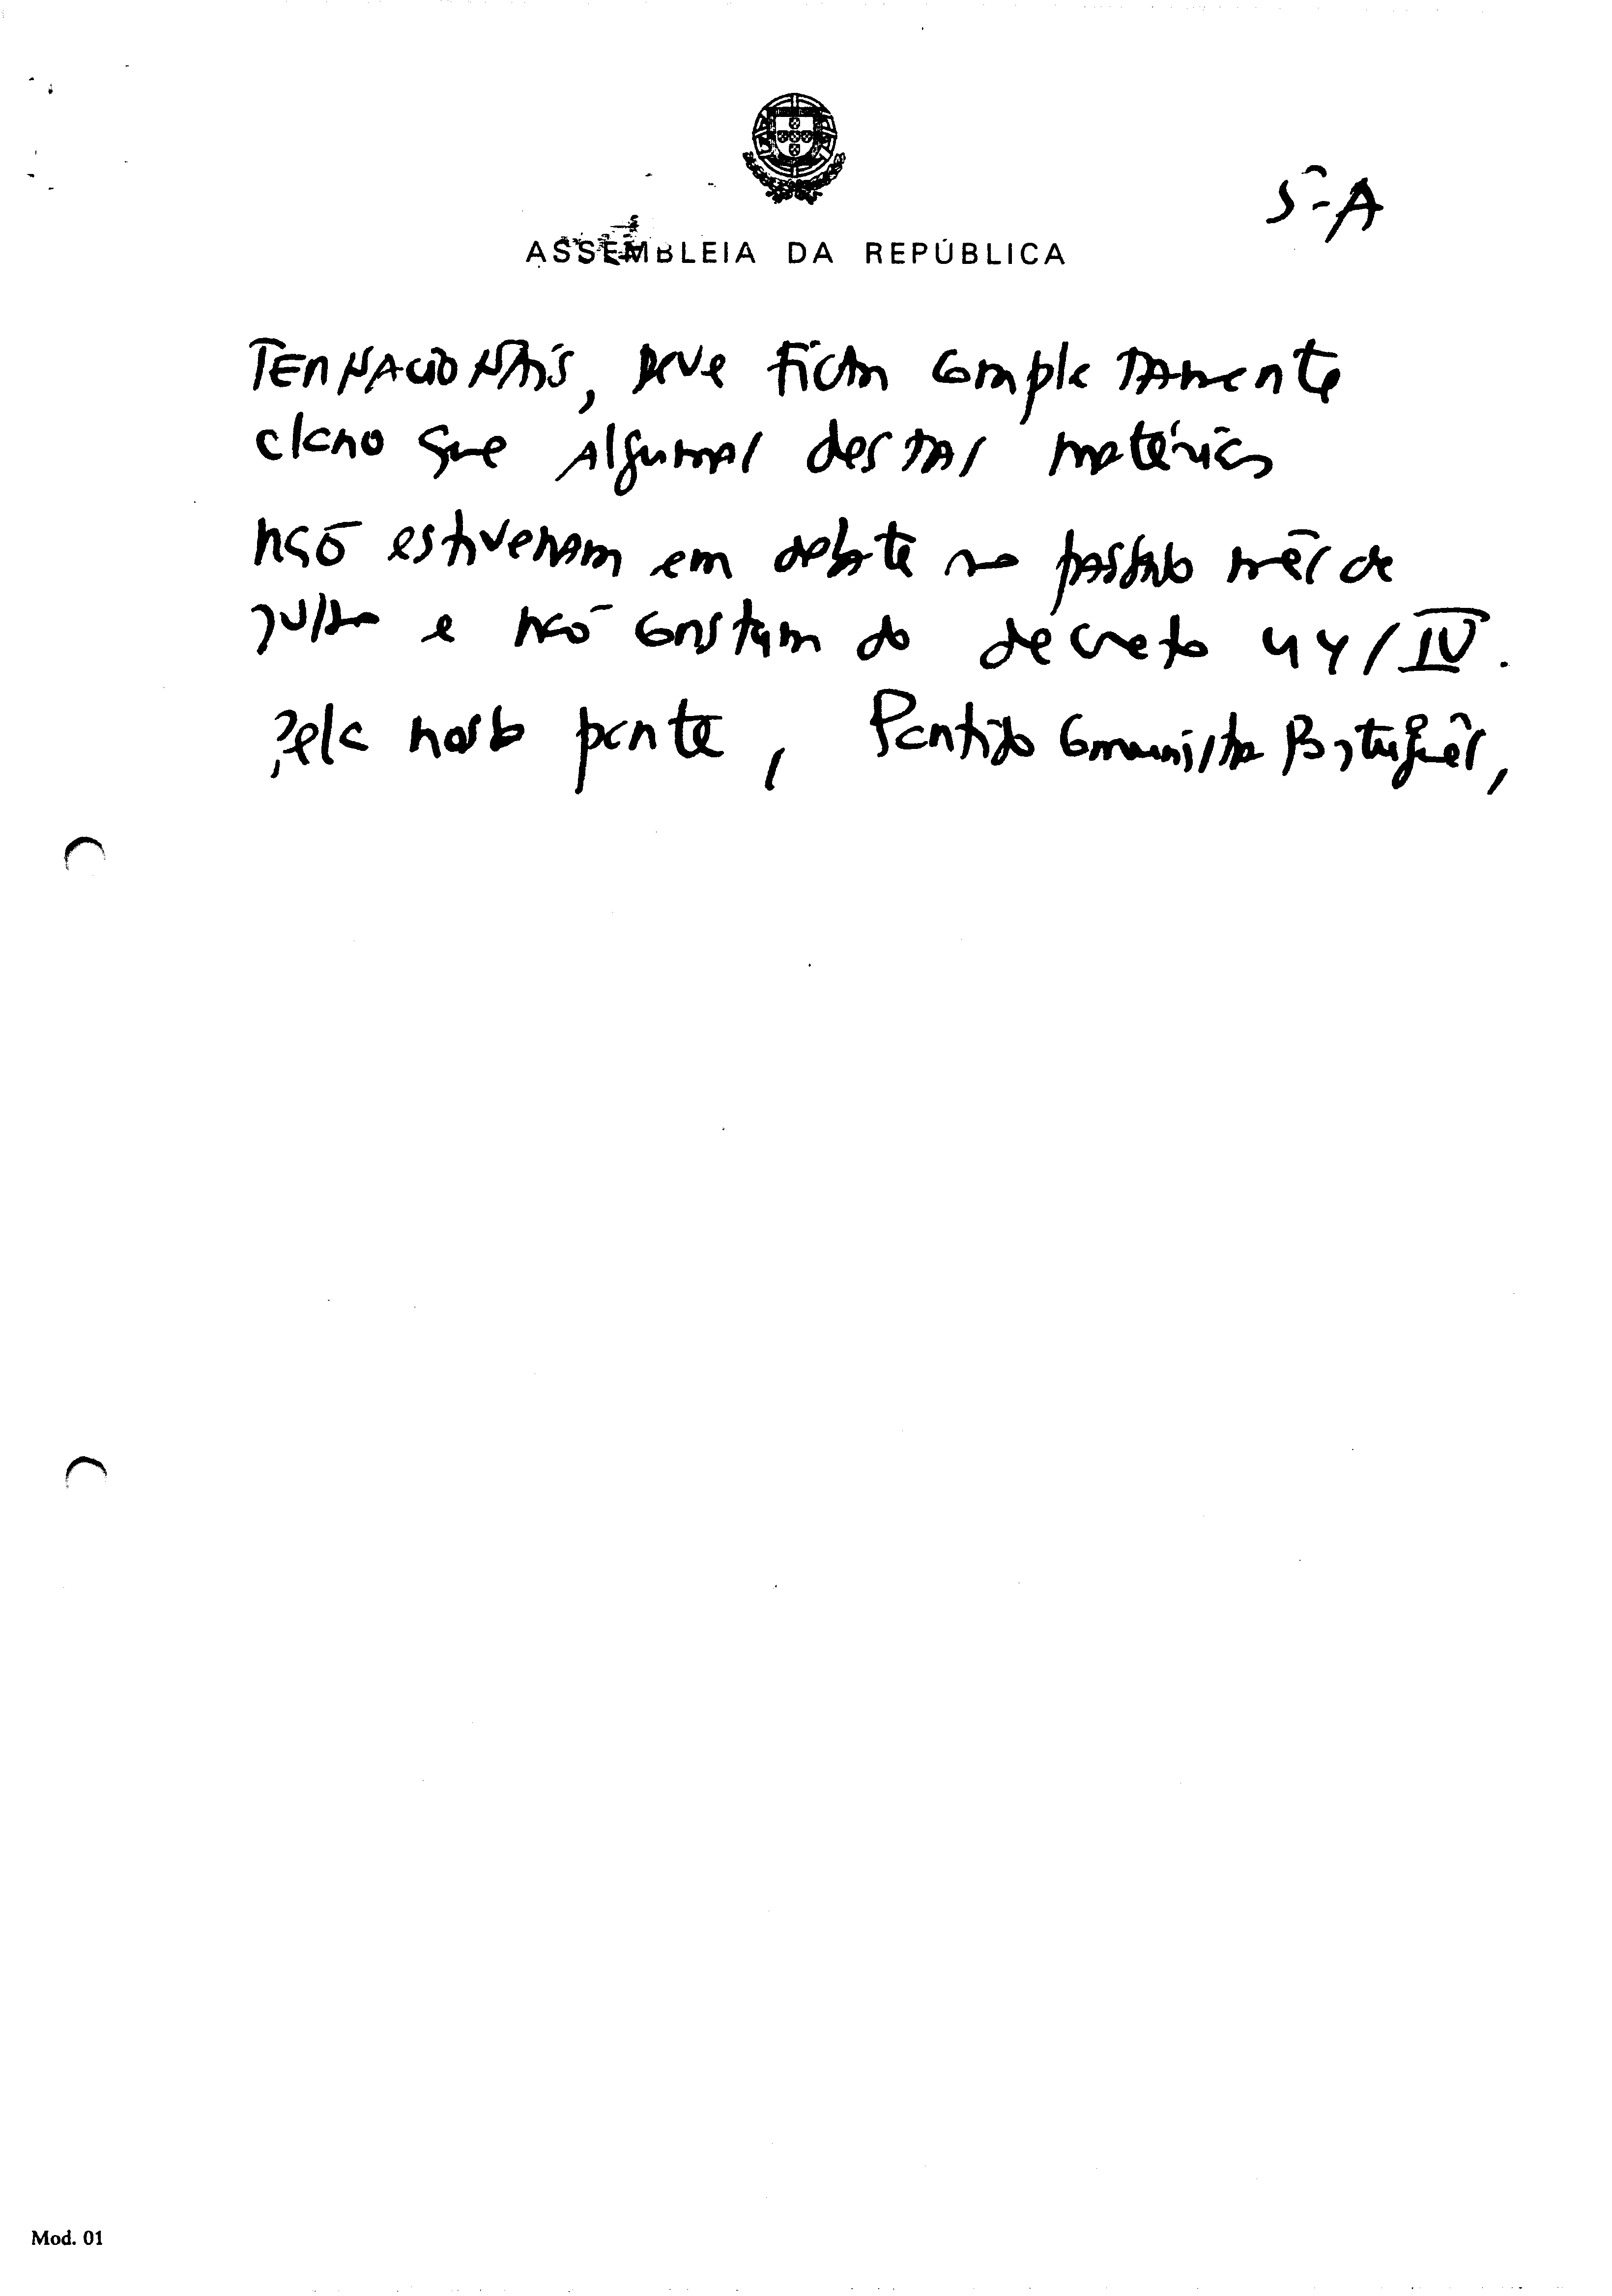 5-A
ASSEMBLEIA DA REPÚBLICA
TERNACIONAIS, deve ficar completamente
claro que algumas destas matérias
não estiveram em debate no passado mês de
julho e não constam do decreto 44/IV.
Pela nossa parte, Partido Comunista Português,
Mod. 01